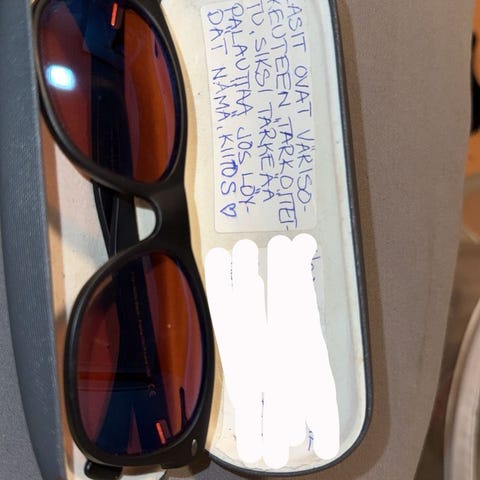 LASIT OVAT VÄRISO-
KEUTEEN TARKOITET-
TU, SIKSI TÄRKEÄÄ
PALAUTTAA, JOS LÖY-
DÄT NÄMÄ, KIITOS ♡